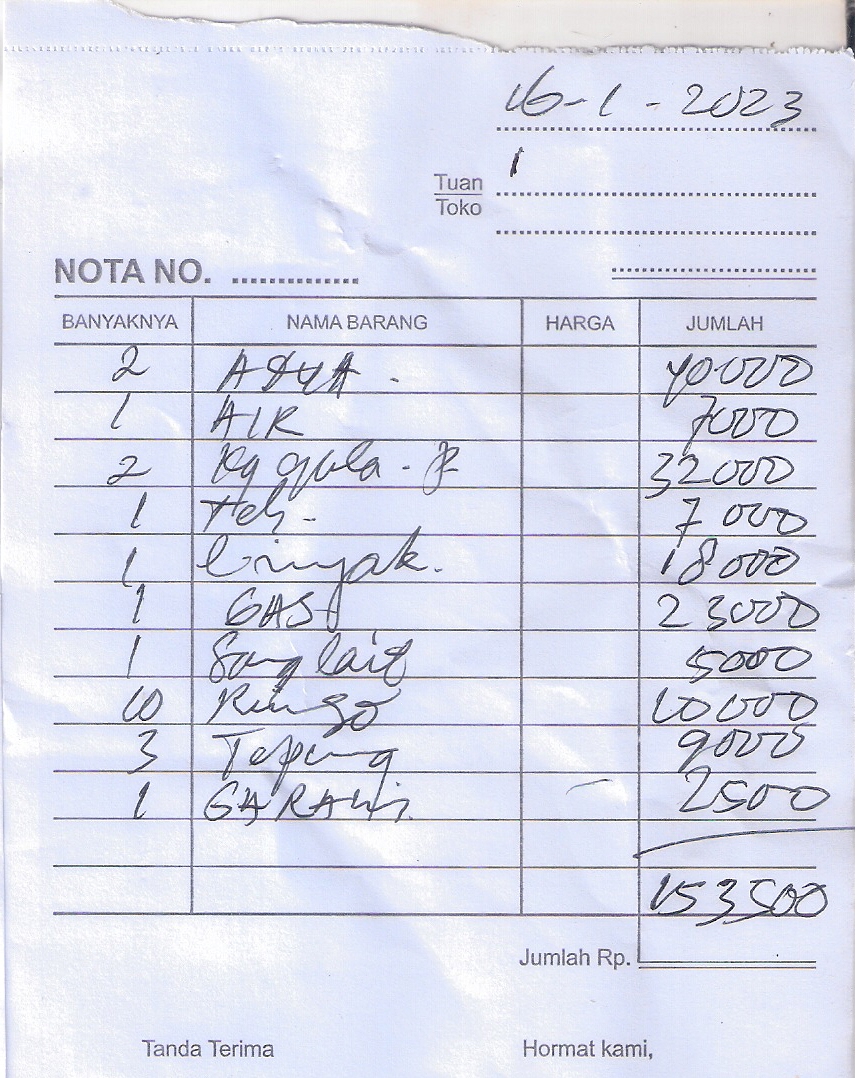 16-1-2023
Tuan
Toko
NOTA NO. ..............
BANYAKNYA NAMA BARANG HARGA JUMLAH
2 AQUA. 40000
1 AIR 7000
2 kg gula - 32000
1 Teh- 7000
1 minyak. 18000
1 GAS 23000
1 Sunglait 5000
10 10000
3 Tepung 9000
1 GARAM 2500
153500
Jumlah Rp.
Tanda Terima Hormat kami,